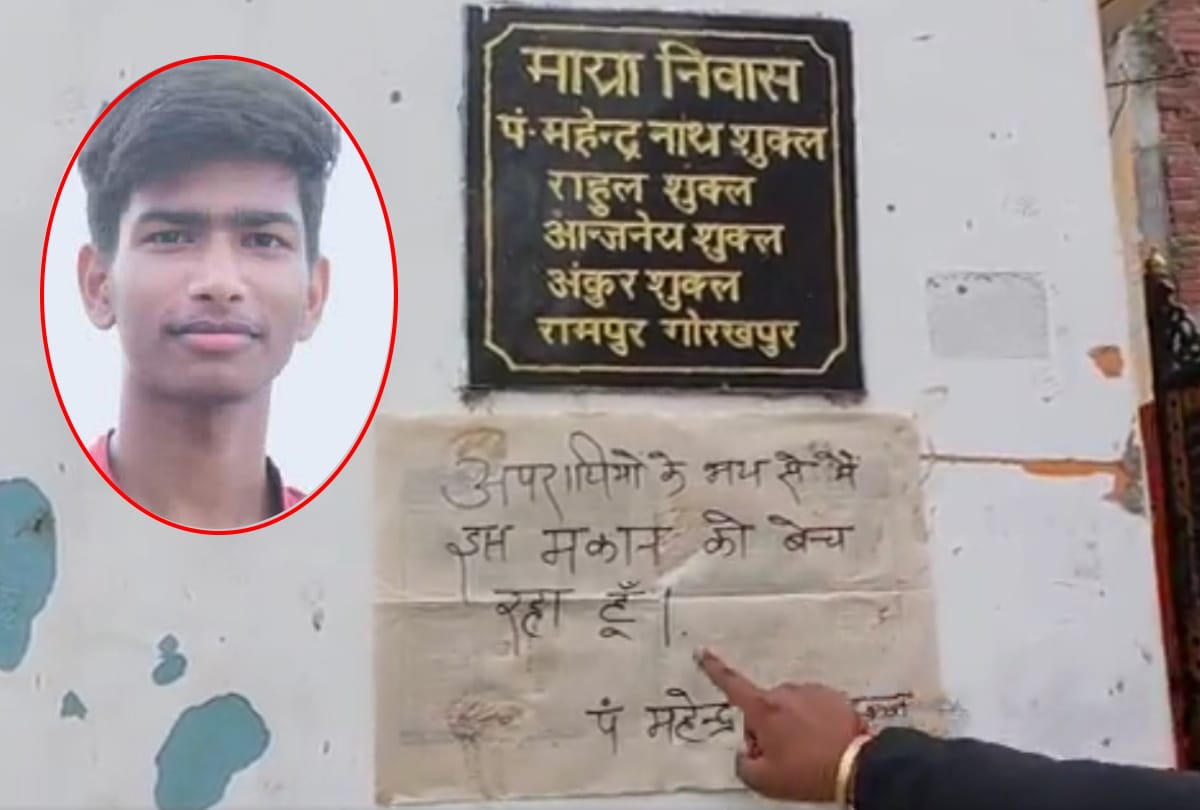 माया निवास
पं. महेन्द्र नाथ शुक्ल
राहुल शुक्ल
आन्जनेय शुक्ल
अंकुर शुक्ल
रामपुर गोरखपुर
अपराधियों के भय से मैं
इस मकान को बेच
रहा हूँ।
पं महेन्द्र